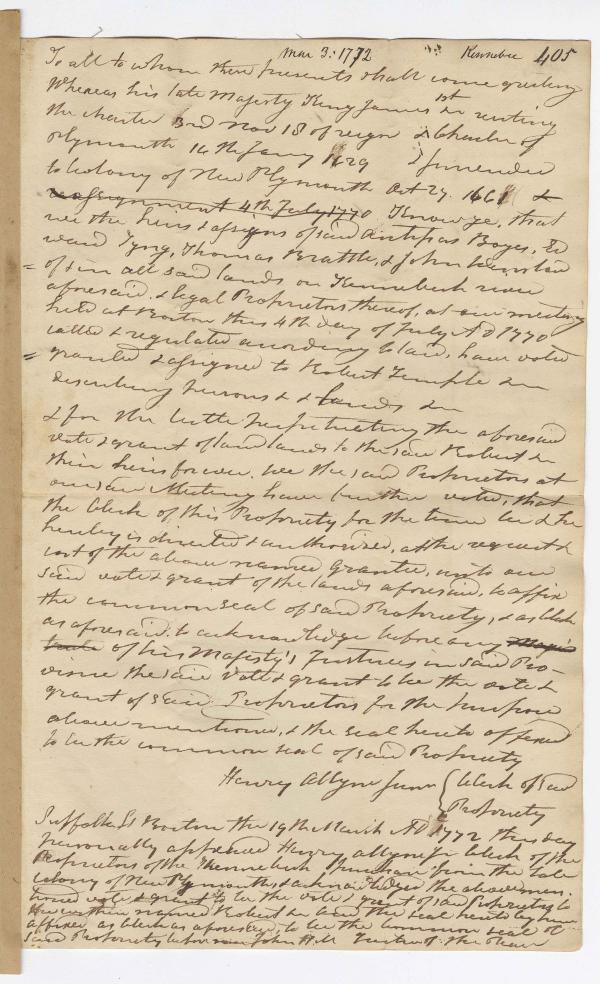 Mar 3: 1772 Kennebec 405
To all to whom these presents shall come greeting
Whereas his late Majesty King James 1st & reciting
the charter 3rd Nov 18 of reign & Charter of
Plymouth 16th Jany 1629 & surrender
to Colony of New Plymouth Oct 27. 1661 &
assignment 4th July 1770 Know ye, that
we the heirs & assigns of said Antipas Boyes, Ed
ward Tyng, Thomas Brattle, & John Winslow
of & in all said lands on Kennebeck river
aforesaid & legal Proprietors thereof, at our meeting
held at Boston this 4th day of July AD 1770
called & regulated according to law, have voted
granted & assigned to Robert Temple &
describing persons & & lands &
& for the better perpetuating the aforesaid
vote & grant of said lands to the said Robert &
their heirs forever. We the said Proprietors at
our said Meeting have further voted, that
the Clerk of this Propriety for the time be & he
hereby is directed & authorized, at the request &
cost of the above named grantee, unto our
said vote & grant of the lands aforesaid, to affix
the common seal of said Propriety, & as Clerk
as aforesaid, to acknowledge before any
of his Majesty's Justices in said Pro-
vince the said vote & grant to be the vote &
grant of said Proprietors for the purpose
above mentioned, & the seal hereto affixed
to be the common seal of said Propriety
Henry Allyne Junr { Clerk of said
Propriety
Suffolk Ss Boston the 19th March AD 1772 this day
personally appeared Henry Allyne Jr Clerk of the
Proprietors of the Kennebeck purchase from the late
Colony of New Plymouth & acknowledged the abovemen-
tioned vote & grant to be the vote & grant of said Proprietors to
the within named Robert & and the seal hereto by him
affixed as Clerk as aforesaid, to be the common seal of
said Propriety before John Hill Justice of the Peace